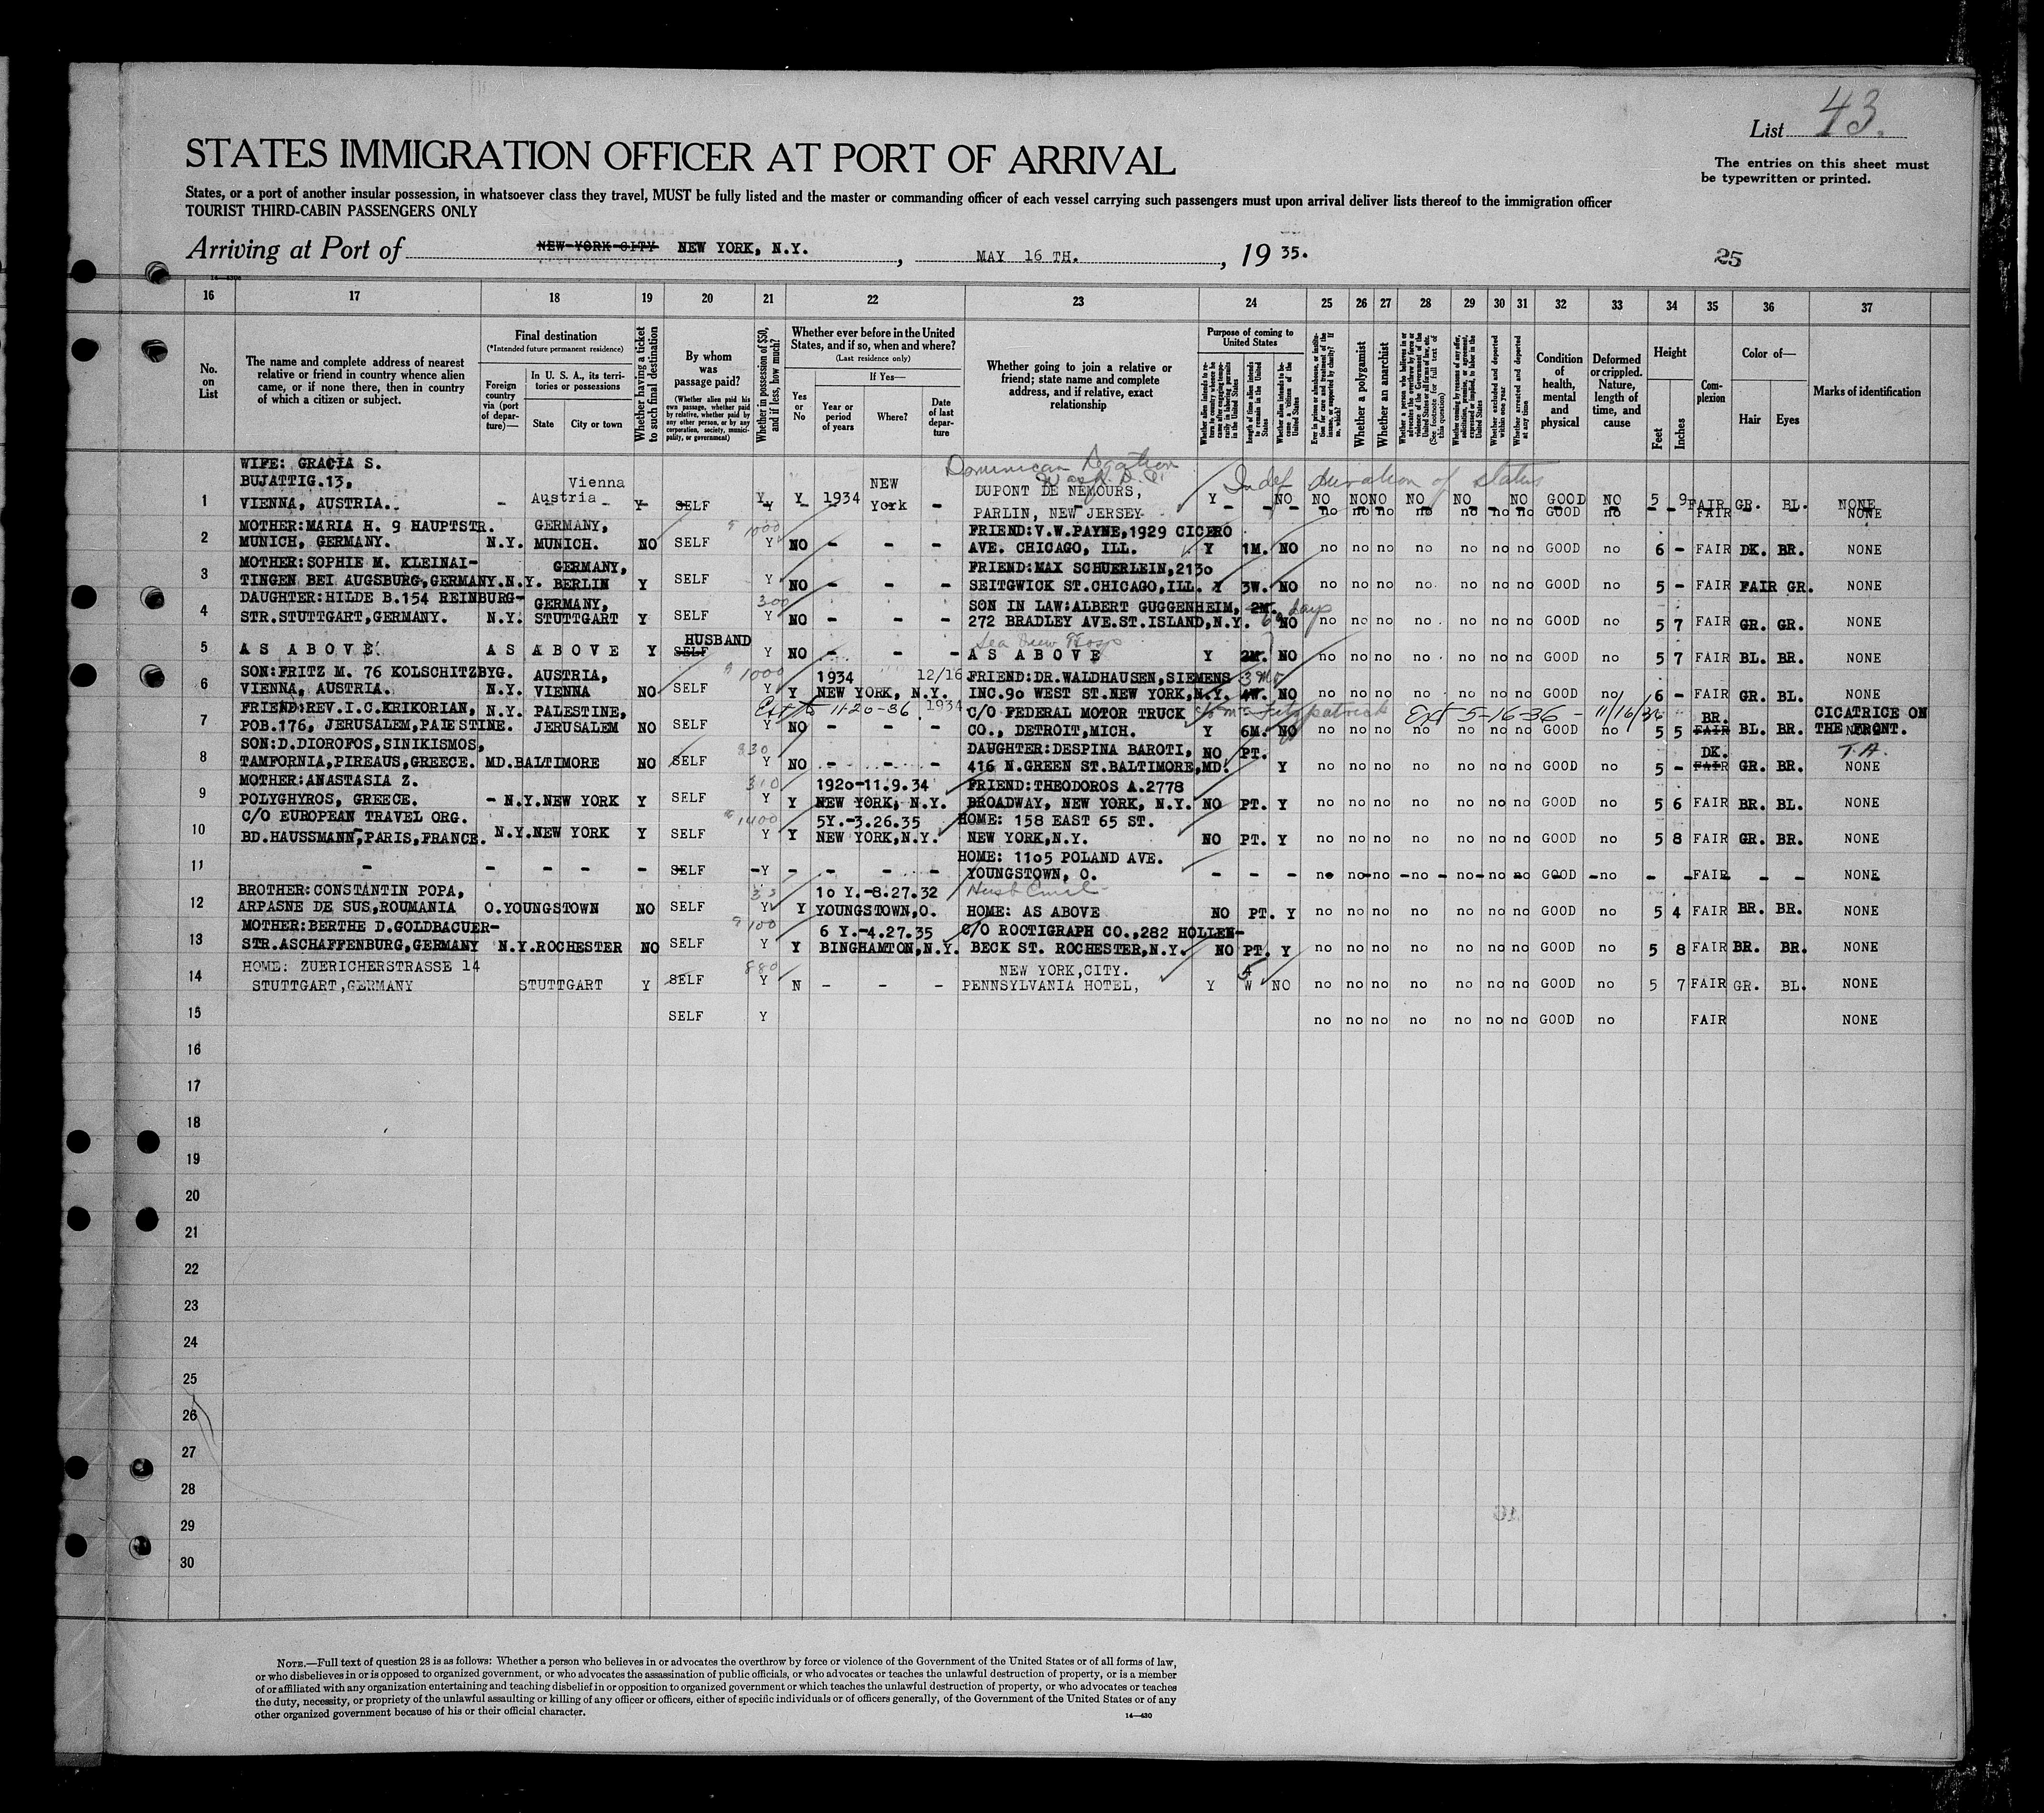 List 43.
The entries on this sheet must
be typewritten or printed.
STATES IMMIGRATION OFFICER AT PORT OF ARRIVAL
States, or a port of another insular possession, in whatsoever class they travel, MUST be fully listed and the master or commanding officer of each vessel carrying such passengers must upon arrival deliver lists thereof to the immigration officer
TOURIST THIRD-CABIN PASSENGERS ONLY
Arriving at Port of NEW YORK CITY NEW YORK, N.Y., MAY 16 TH., 19 35.
25
16 17 18 19 20 21 22 23 24 25 26 27 28 29 30 31 32 33 34 35 36 37
No. on List
The name and complete address of nearest relative or friend in country whence alien came, or if none there, then in country of which a citizen or subject.
Final destination
(*Intended future permanent residence)
Foreign country via (port of departure)—
In U. S. A., its territories or possessions
State
City or town
Whether having a ticket to such final destination
By whom was passage paid?
(Whether alien paid his own passage, whether paid by relative, whether paid by any other person, or by any corporation, society, municipality, or government)
Whether in possession of $50, and if less, how much?
Whether ever before in the United States, and if so, when and where?
(Last residence only)
Yes or No
If Yes—
Year or period of years
Where?
Date of last departure
Whether going to join a relative or friend; state name and complete address, and if relative, exact relationship
Purpose of coming to United States
Whether a polygamist
Whether an anarchist
Condition of health, mental and physical
Deformed or crippled. Nature, length of time, and cause
Height
Feet
Inches
Complexion
Color of—
Hair
Eyes
Marks of identification
Dominican Legation
Wash. D.C.
Indef duration of status
1 WIFE: GRACIA S.
BUJATTIG.13,
VIENNA, AUSTRIA. - Austria Vienna - Y SELF Y Y 1934 NEW York - DUPONT DE NEMOURS,
PARLIN, NEW JERSEY Y NO NO NO NO NO NO NO GOOD NO 5 9 FAIR GR. BL. NONE
no no no no no no no GOOD no FAIR NONE
2 MOTHER:MARIA H. 9 HAUPTSTR.
MUNICH, GERMANY. N.Y. GERMANY, MUNICH. NO SELF 1000 Y NO - - - FRIEND:V.W.PAYNE,1929 CICERO
AVE. CHICAGO, ILL. Y 1M. NO no no no no no no no GOOD no 6 - FAIR DK. BR. NONE
3 MOTHER:SOPHIE M. KLEINAI-
TINGEN BEI AUGSBURG,GERMANY.N.Y. GERMANY, BERLIN Y SELF Y NO - - - FRIEND:MAX SCHUERLEIN,2130
SEITGWICK ST.CHICAGO,ILL. Y 3W. NO no no no no no no no GOOD no 5 - FAIR FAIR GR. NONE
4 DAUGHTER:HILDE B.154 REINBURG-
STR.STUTTGART,GERMANY. N.Y. GERMANY, STUTTGART Y SELF 300 Y NO - - - SON IN LAW:ALBERT GUGGENHEIM, 2M. days
272 BRADLEY AVE.ST.ISLAND,N.Y. 60 NO no no no no no no no GOOD no 5 7 FAIR GR. GR. NONE
5 AS ABOVE. AS ABOVE Y HUSBAND SELF Y NO - - - Sea View Hosp
AS ABOVE Y 2M. NO no no no no no no no GOOD no 5 7 FAIR BL. BR. NONE
6 SON:FRITZ M. 76 KOLSCHITZBYG.
VIENNA, AUSTRIA. N.Y. AUSTRIA, VIENNA NO SELF 1000 Y Y 1934 NEW YORK, N.Y. 12/16 1934 FRIEND:DR.WALDHAUSEN,SIEMENS 3 Mo
INC.90 WEST ST.NEW YORK,N.Y. 4W. NO no no no no no no no GOOD no 6 - FAIR GR. BL. NONE
7 FRIEND:REV.I.C.KRIKORIAN,
POB.176, JERUSALEM,PALESTINE. N.Y. PALESTINE, JERUSALEM NO SELF Y Ext to 11-20-36 NO - - - C/O FEDERAL MOTOR TRUCK c/o Mr Fitzpatrick Ext 5-16-36 - 11/16/36
CO., DETROIT,MICH. Y 6M. NO no no no no no no no GOOD no 5 5 BR. FAIR BL. BR. CICATRICE ON
THE FRONT.
8 SON:D.DIOROFOS,SINIKISMOS,
TAMFORNIA,PIREAUS,GREECE. MD.BALTIMORE NO SELF 830 Y NO - - - DAUGHTER:DESPINA BAROTI,
416 N.GREEN ST.BALTIMORE,MD. NO PT. Y no no no no no no no GOOD no 5 - DK. FAIR GR. BR. T.A. NONE
9 MOTHER:ANASTASIA Z.
POLYGHYROS, GREECE. - N.Y.NEW YORK Y SELF 310 Y Y 1920-11.9.34 NEW YORK, N.Y. FRIEND:THEODOROS A.2778
BROADWAY, NEW YORK, N.Y. NO PT. Y no no no no no no no GOOD no 5 6 FAIR BR. BL. NONE
10 C/O EUROPEAN TRAVEL ORG.
BD.HAUSSMANN,PARIS,FRANCE. N.Y.NEW YORK Y SELF 1400 Y Y 5Y.-3.26.35 NEW YORK,N.Y. HOME: 158 EAST 65 ST.
NEW YORK,N.Y. NO PT. Y no no no no no no no GOOD no 5 8 FAIR GR. BR. NONE
11 - - - - - SELF -Y - - - - HOME: 1105 POLAND AVE.
YOUNGSTOWN, O. - - - no no no no no no no GOOD no - - FAIR - - NONE
12 BROTHER:CONSTANTIN POPA,
ARPASNE DE SUS,ROUMANIA O.YOUNGSTOWN NO SELF Y Y 10 Y.-8.27.32 YOUNGSTOWN,O.
HOME: AS ABOVE NO PT. Y no no no no no no no GOOD no 5 4 FAIR BR. BR. NONE
13 MOTHER:BERTHE D.GOLDBACUER-
STR.ASCHAFFENBURG,GERMANY N.Y.ROCHESTER NO SELF 100 Y Y 6 Y.-4.27.35 BINGHAMTON,N.Y. C/O ROCTIGRAPH CO.,282 HOLLEN-
BECK ST. ROCHESTER,N.Y. NO PT. Y no no no no no no no GOOD no 5 8 FAIR BR. BR. NONE
14 HOME: ZUERICHERSTRASSE 14
STUTTGART,GERMANY STUTTGART Y SELF 880 Y N - - - NEW YORK,CITY.
PENNSYLVANIA HOTEL, Y W NO no no no no no no no GOOD no 5 7 FAIR GR. BL. NONE
15 SELF Y no no no no no no no GOOD no FAIR NONE
16
17
18
19
20
21
22
23
24
25
26
27
28
29
30
NOTE.—Full text of question 28 is as follows: Whether a person who believes in or advocates the overthrow by force or violence of the Government of the United States or of all forms of law,
or who disbelieves in or is opposed to organized government, or who advocates the assassination of public officials, or who advocates or teaches the unlawful destruction of property, or is a member
of or affiliated with any organization entertaining and teaching disbelief in or opposition to organized government or which teaches the unlawful destruction of property, or who advocates or teaches
the duty, necessity, or propriety of the unlawful assaulting or killing of any officer or officers, either of specific individuals or of officers generally, of the Government of the United States or of any
other organized government because of his or their official character.
14—430